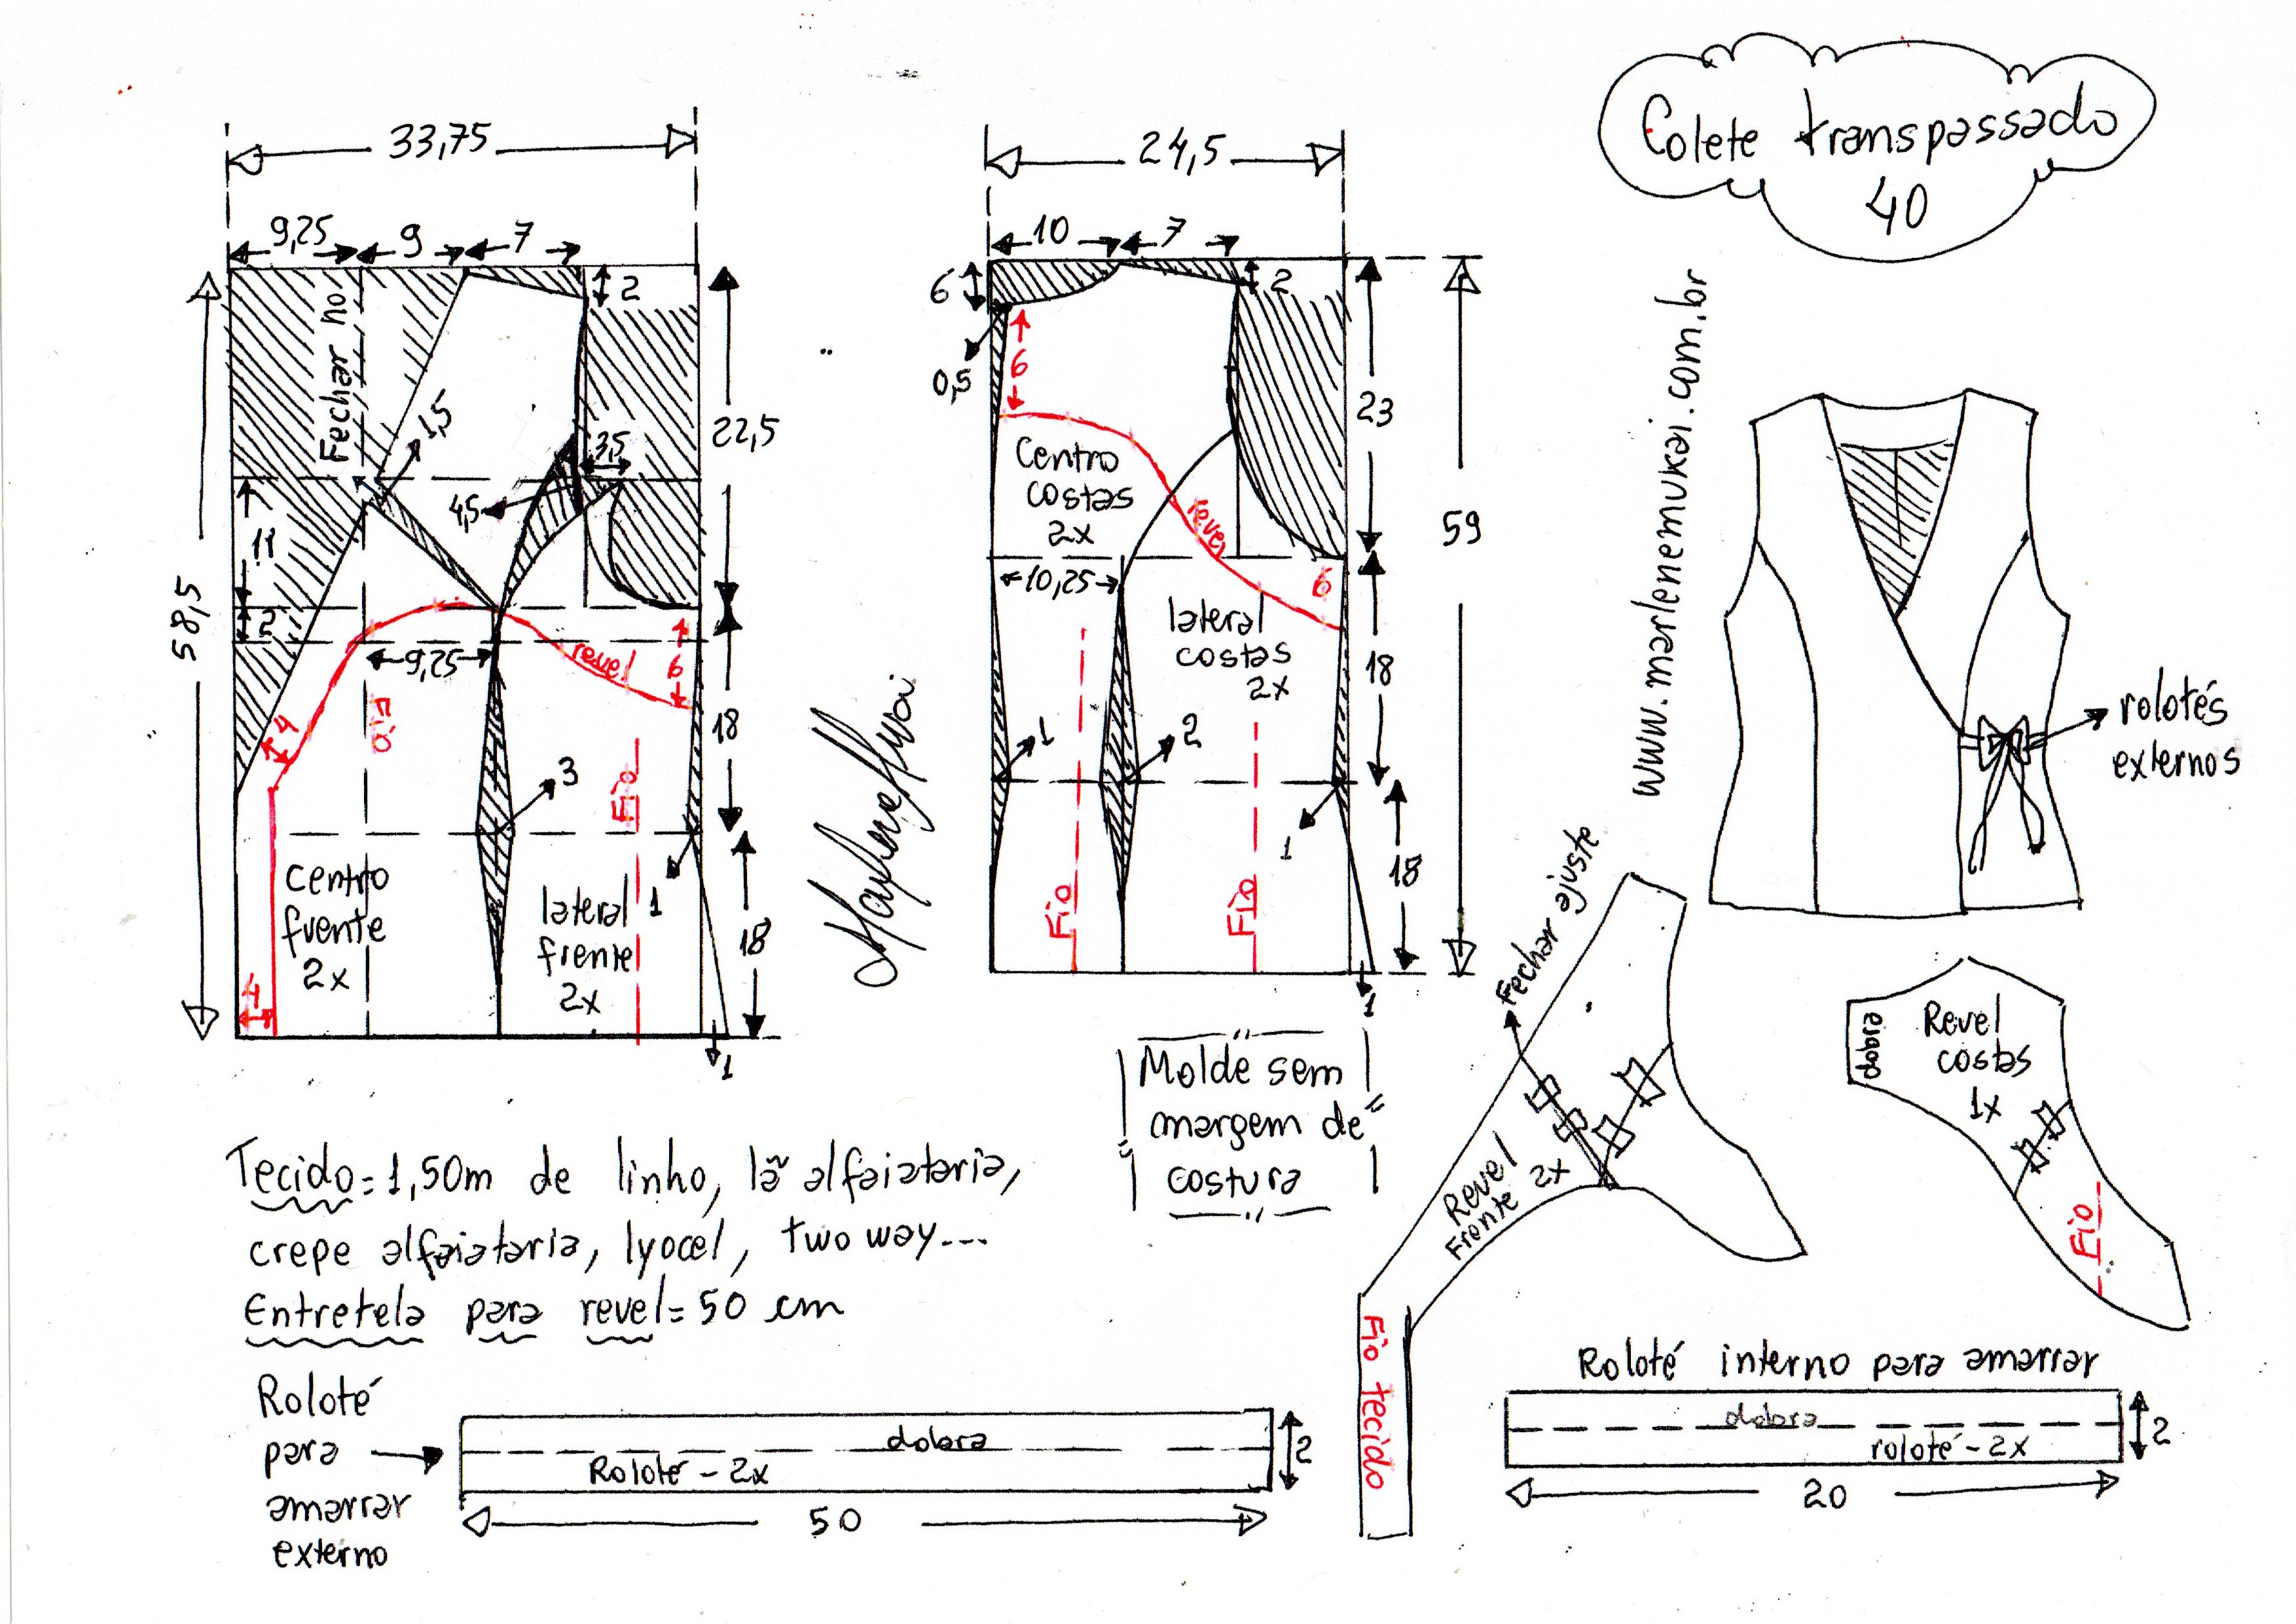 Colete transpassado
40
33,75
9,25
9
7
2
Fechar no
1,5
3,5
4,5
22,5
11
2
58,5
9,25
revel
6
4
Fio
18
3
Fio
1
centro
frente
2x
lateral
frente
2x
18
4
1
24,5
10
7
6
2
0,5
6
23
Centro
costas
2x
revel
59
10,25
6
lateral
costas
2x
18
1
2
1
Fio
Fio
18
1
www.marlenemukai.com.br
rolotés
externos
Molde sem
margem de
costura
Fechar ajuste
Revel
Frente 2x
Fio tecido
dobra
Revel
costas
1x
Fio
Tecido=1,50m de linho, lã alfaiataria,
crepe alfaiataria, lyocel, two way...
Entretela para revel=50 cm
Roloté
para
amarrar
externo
dobra
Roloté - 2x
2
50
Roloté interno para amarrar
dobra
roloté - 2x
2
20